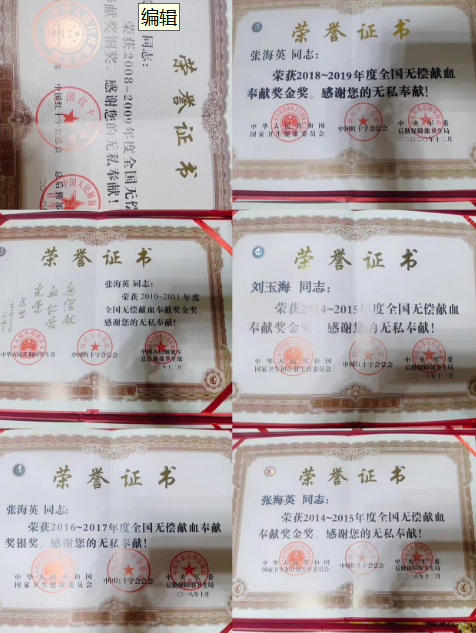 编辑
荣誉证书
同志：
荣获2008~2009年度全国无偿
献奖铜奖。感谢您的无私奉献！
中国红十字会总会
总后勤部
荣誉证书
张海英 同志：
荣获2018~2019年度全国无偿献血
奉献奖金奖。感谢您的无私奉献！
中华人民共和国
国家卫生健康委员会
中国红十字会总会
中央军委
后勤保障部卫生局
二〇二〇年十二月
荣誉证书
张海英 同志：
荣获2010~2011年度
全国无偿献血奉献奖金奖。
感谢您的无私奉献！
中华人民共和国卫生部
中国红十字会总会
中国人民解放军
总后勤部卫生部
荣誉证书
刘玉海 同志：
荣获2014~2015年度全国无偿献血
奉献奖金奖。感谢您的无私奉献！
中华人民共和国
国家卫生和计划生育委员会
中国红十字会总会
中央军委
后勤保障部卫生局
二〇一六年十二月
荣誉证书
张海英 同志：
荣获2016~2017年度全国无偿献血奉献
奖银奖。感谢您的无私奉献！
中华人民共和国
国家卫生健康委员会
中国红十字会总会
中央军委
后勤保障部卫生局
二〇一八年十月
荣誉证书
张海英 同志：
荣获2014~2015年度全国无偿献血
奉献奖金奖。感谢您的无私奉献！
中华人民共和国
国家卫生和计划生育委员会
中国红十字会总会
中央军委
后勤保障部卫生局
二〇一六年十二月